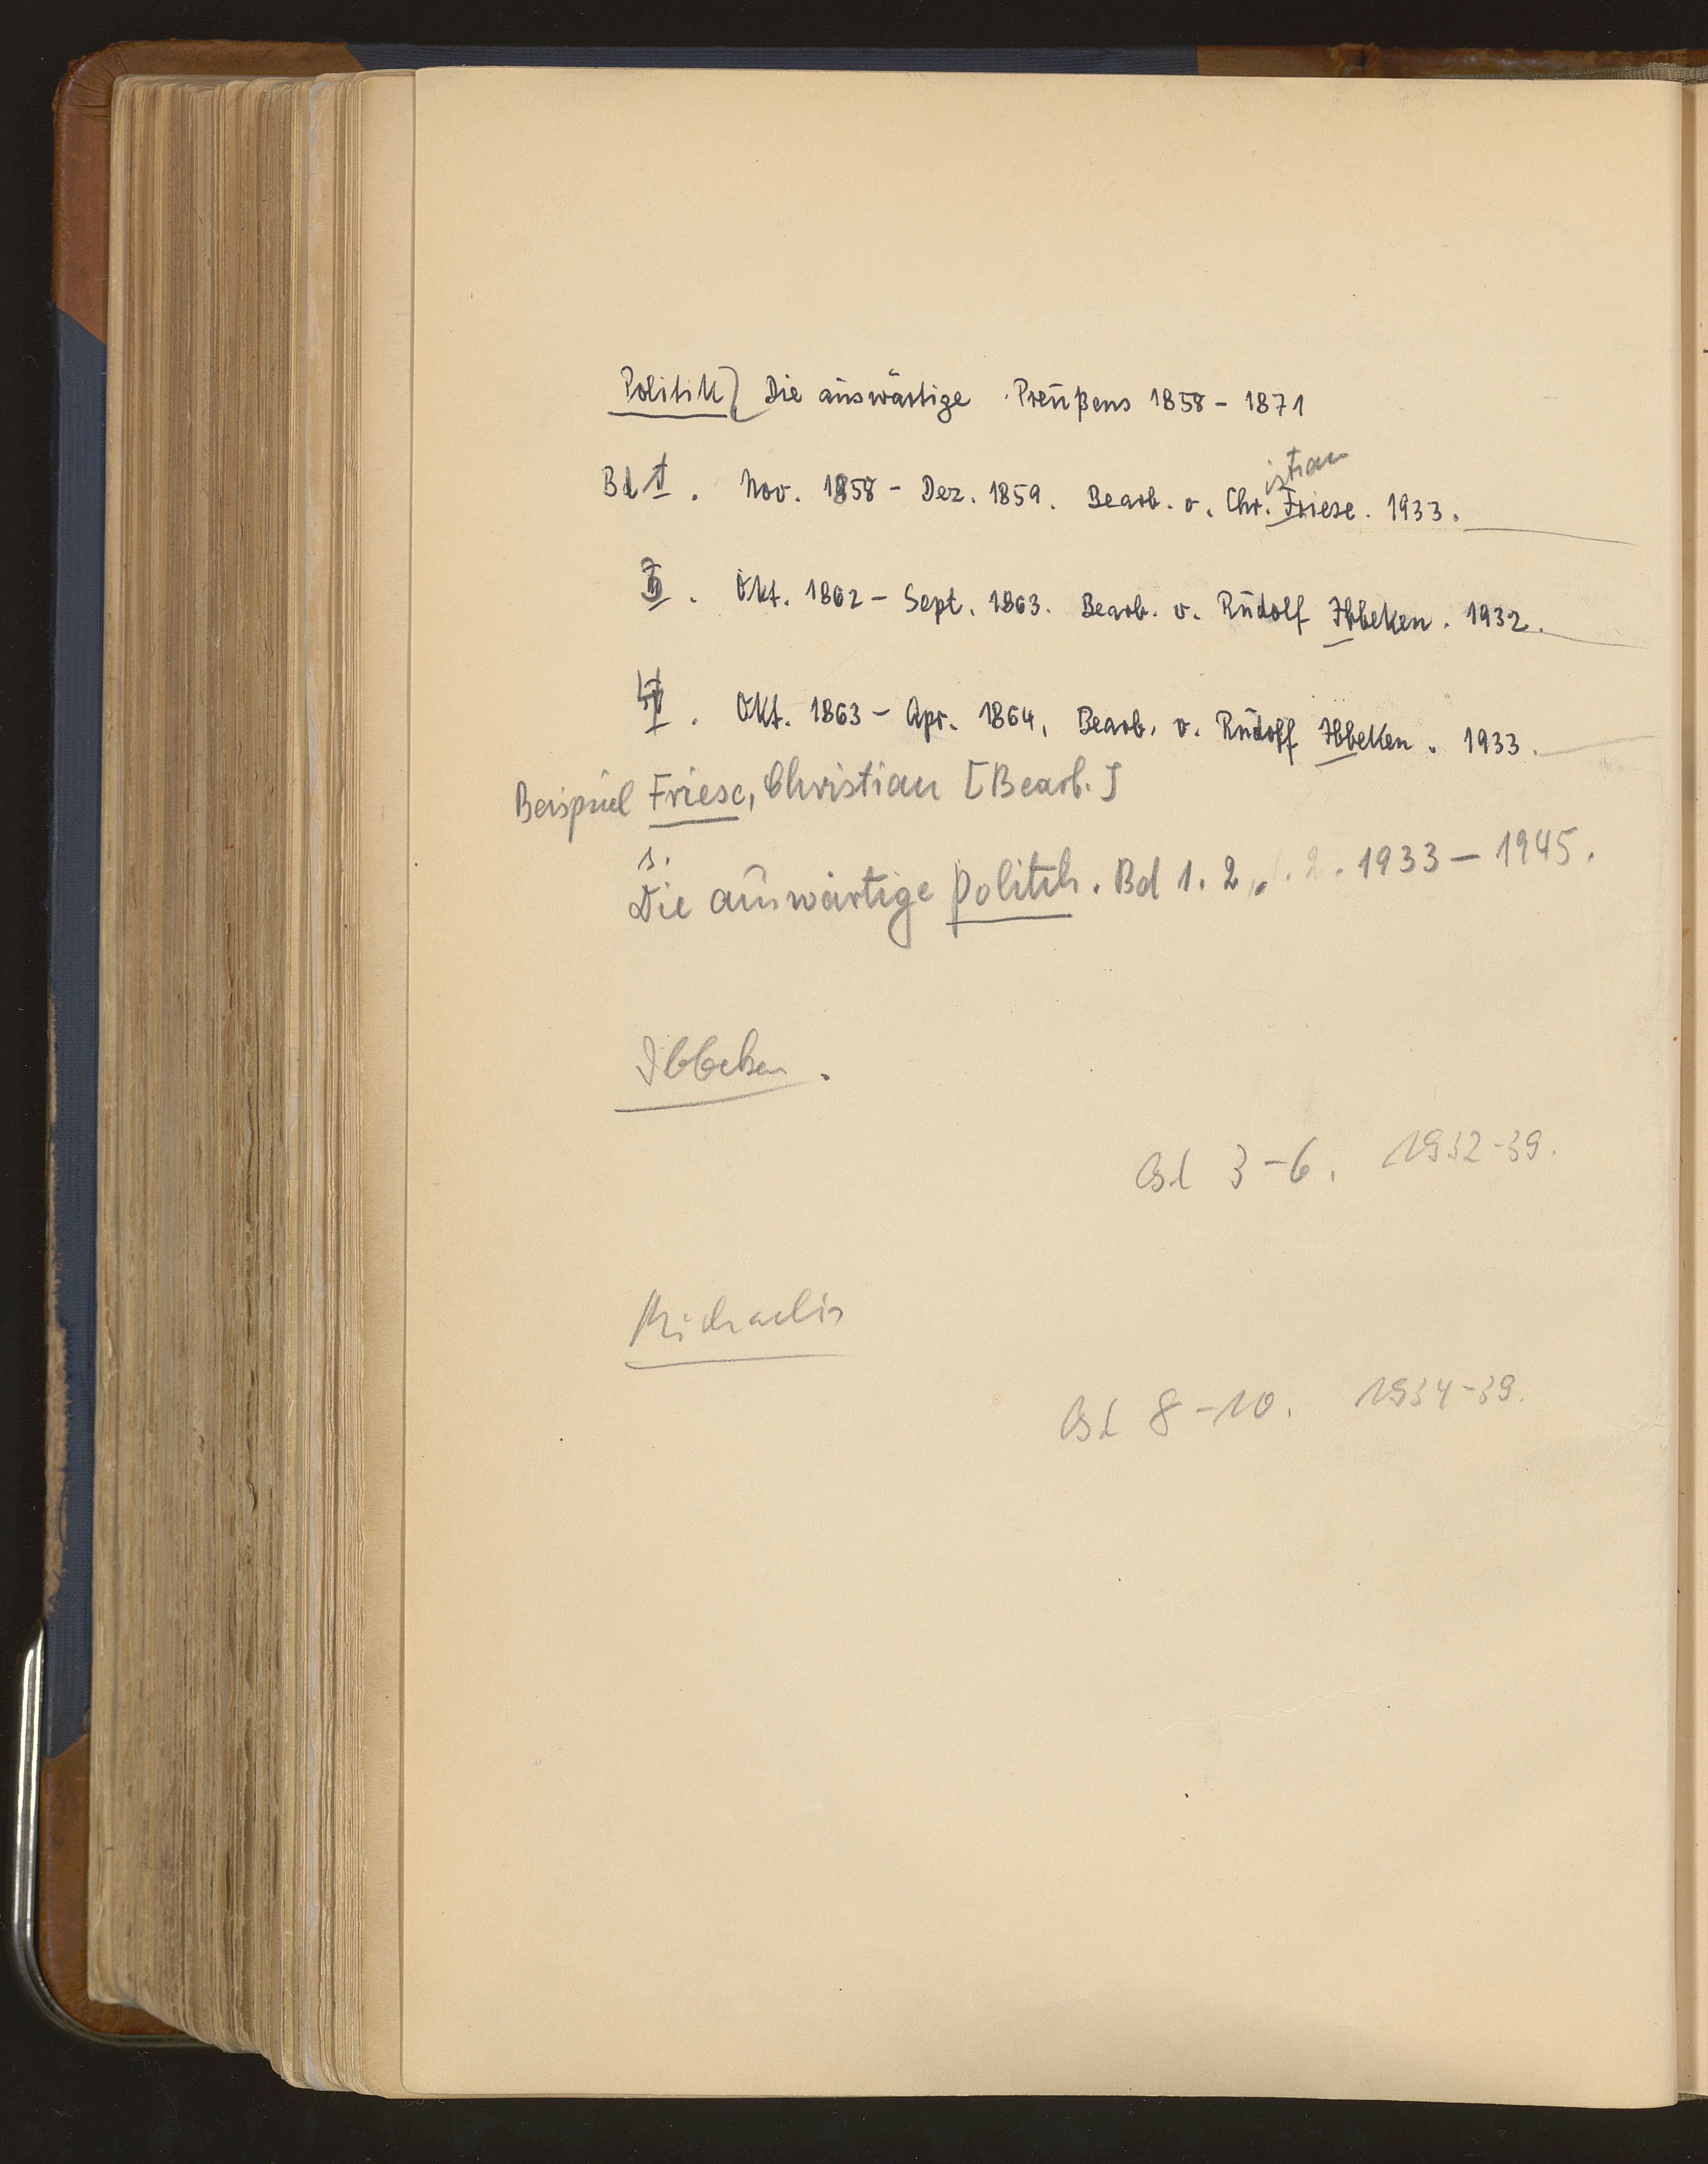 Politik] Die auswärtige Preußens 1858 - 1871
istian
Bd 1. Nov. 1858 - Dez. 1859. Bearb. v. Chr. Friese. 1933.
3. Okt. 1862 - Sept. 1863. Bearb. v. Rudolf Ibbeken. 1932.
4. Okt. 1863 - Apr. 1864, Bearb. v. Rudolf Ibbeken. 1933.
Beispiel Friese, Christian [Bearb.]
s.
Die auswärtige Politik. Bd 1. 2, 1. 2. 1933 - 1945.
Ibbeken.
Bd 3-6. 1932-39.
Michaelis
Bd 8-10. 1934-39.